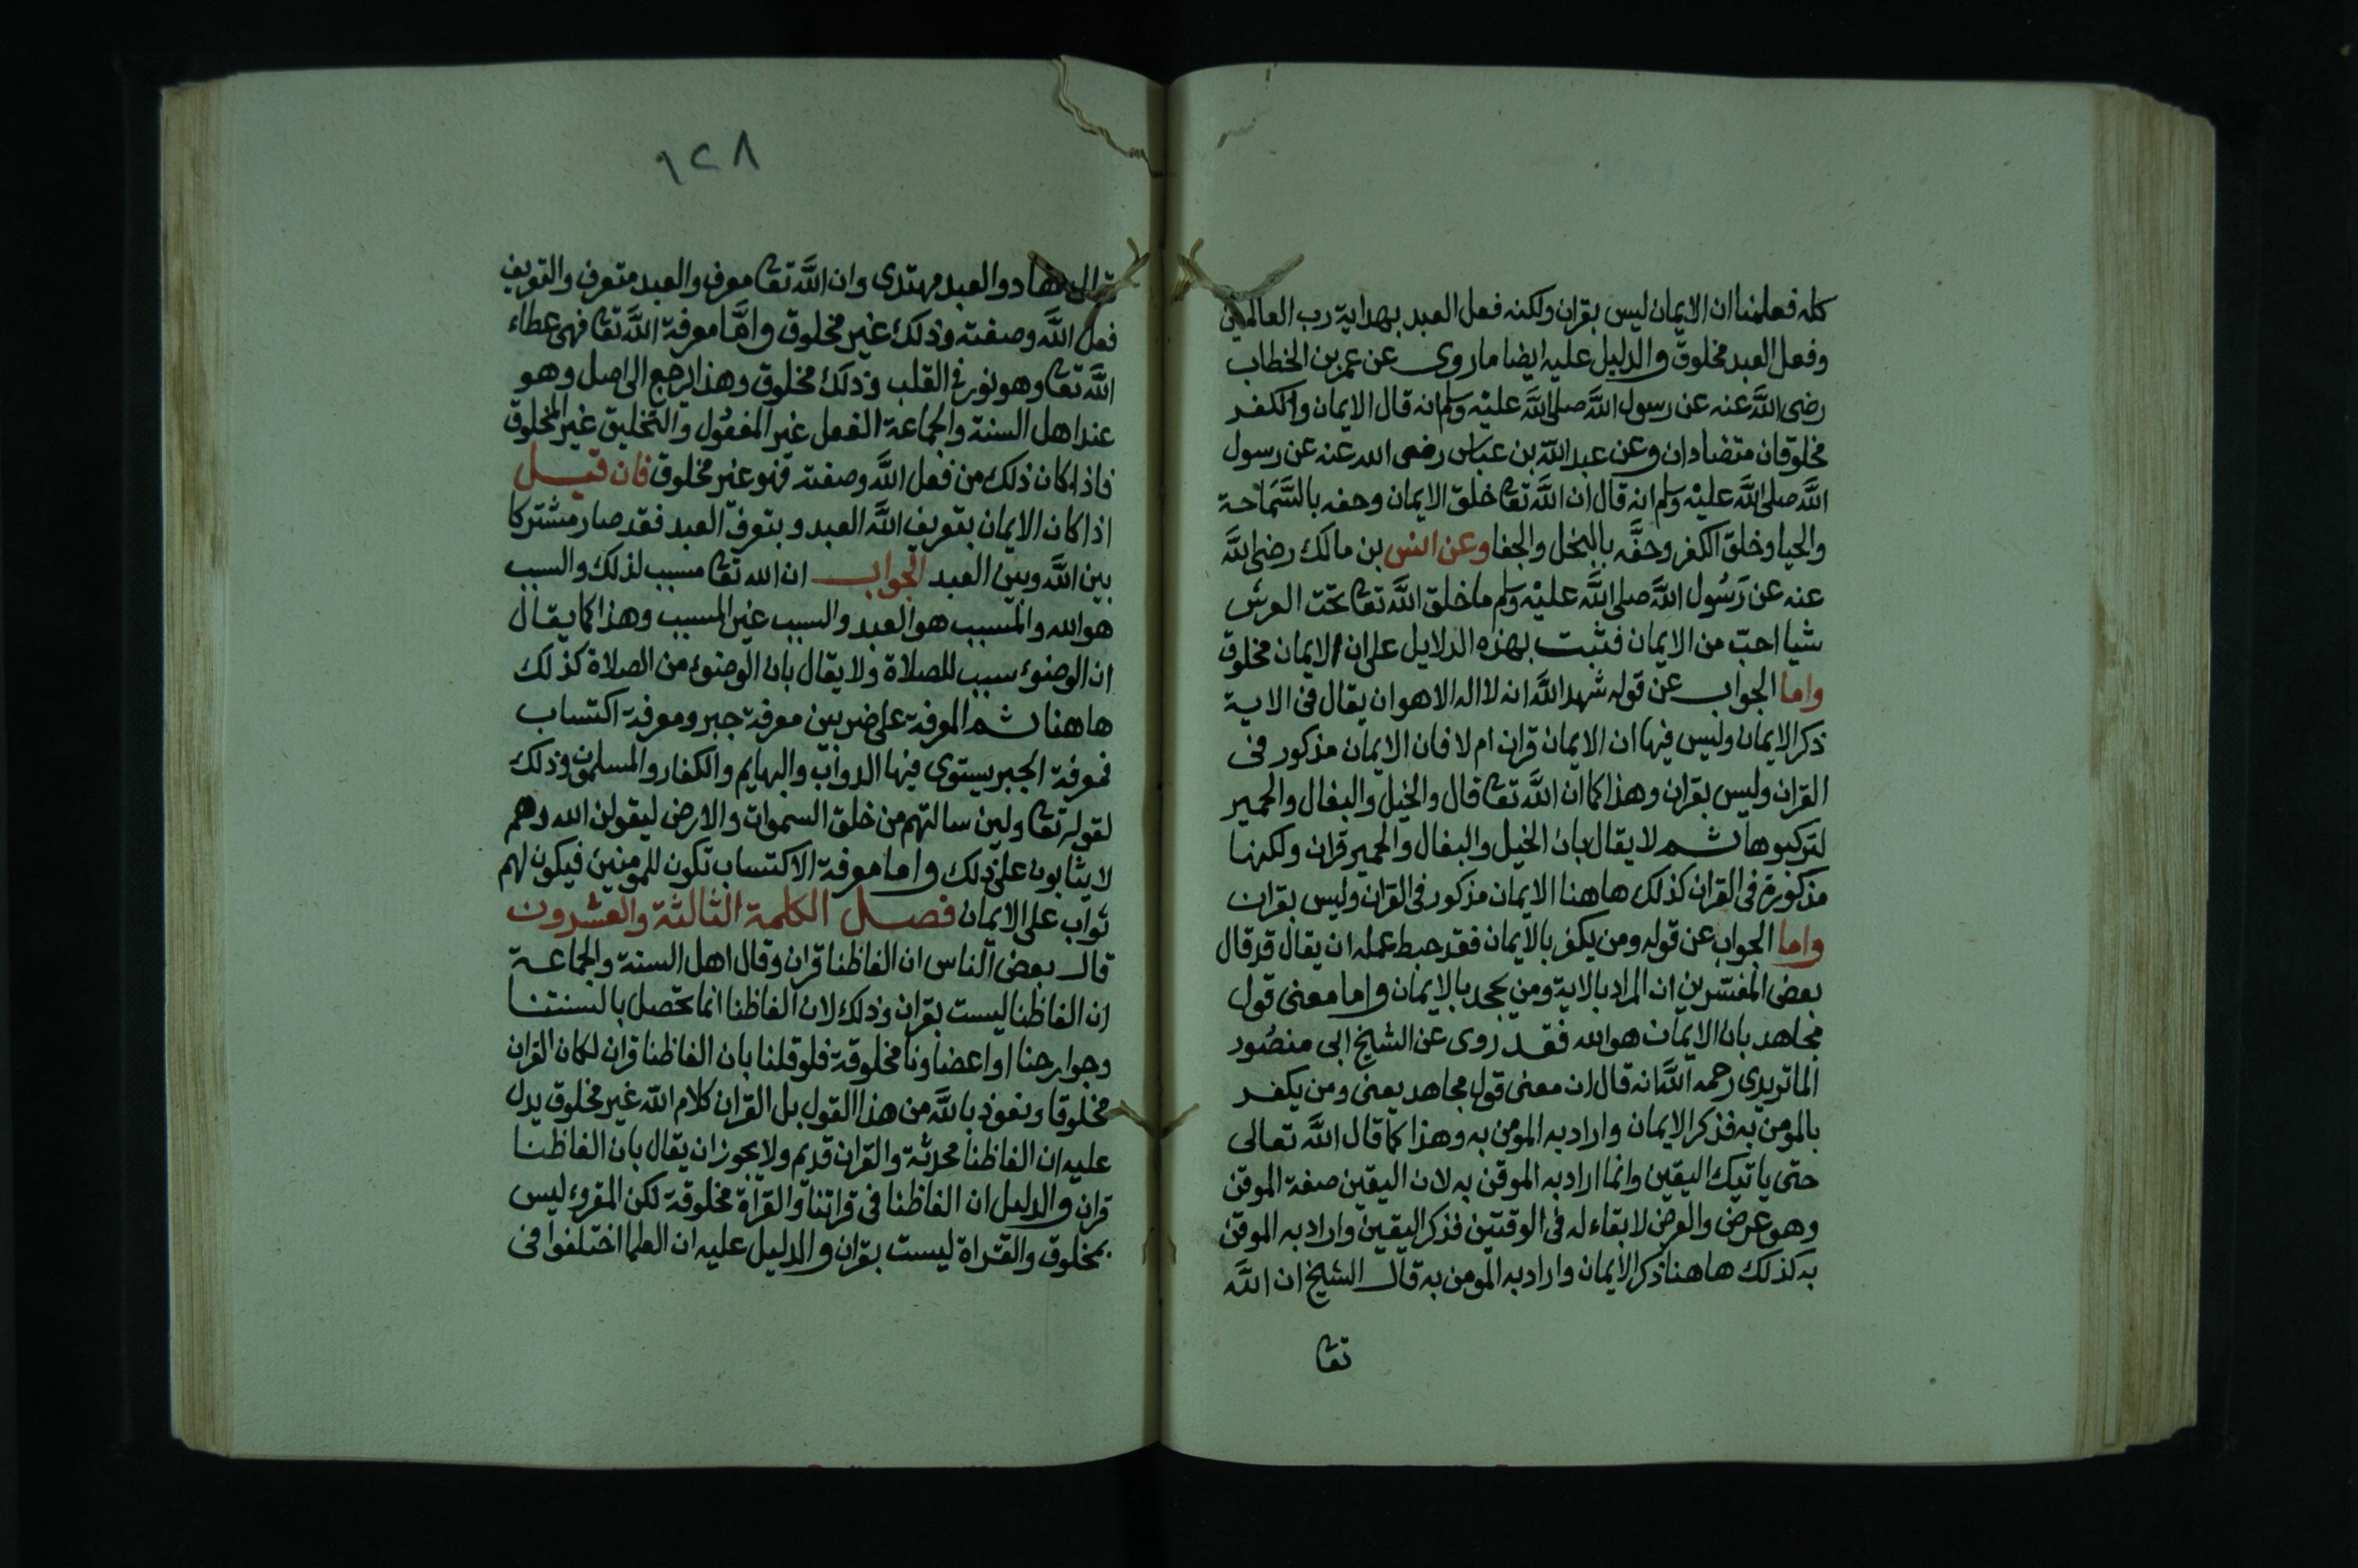 كله فعلمنا ان الايمان ليس بقران ولكنه فعل العبد بهداية رب العالمين
وفعل العبد مخلوق والدليل عليه ايضا ما روى عن عمر بن الخطاب
رضى اللَّه عنه عن رسول اللَّه صلى اللَّه عليْه وسلم انه قال الايمان والكفر
مخلوقان متضادان وعن عبد اللَّه بن عباس رضى الله عنه عن رسول
اللَّه صلى اللَّه عليْه وسلم انه قال ان اللَّه تعا خلق الايمان وحفه بالسَّمَاحة
والحيا وخلق الكفر وحفَّه بالبخل والجفا وعن انس بن مالك رضى اللَّه
عنه عن رَسُول اللَّه صلى اللَّه عليْه وسلم ما خلق اللَّه تعا تحت العرش
شيا احبّ من الايمان فثبت بهذه الدلايل على ان الايمان مخلوق
واما الجواب عن قوله شهد اللَّه انه لا اله الا هو ان يقال فى الاية
ذكر الايمان وليس فيها ان الايمان قران ام لا فان الايمان مذكور فى
القران وليس بقران وهذا كما ان اللَّه تعا قال والخيل والبغال والحمير
لتركبوها ثم لا يقال بان الخيل والبغال والحمير قران ولكنها
مذكورة فى القران كذلك هاهنا الايمان مذكور فى القران وليس بقران
واما الجواب عن قوله ومن يكفر بالايمان فقد حبط عمله ان يقال قد قال
بعض المفسّرين ان المراد بالاية ومن يجحد بالايمان واما معنى قول
مجاهد بان الايمان هو الله فقد روى عن الشيخ ابى منصُور
الماتريدى رحمه اللَّه انه قال ان معنى قول مجاهد يعنى ومن يكفر
بالمومن به فذكر الايمان واراد به المومن به وهذا كما قال اللَّه تعالى
حتى ياتيك اليقين وانما اراد به الموقن به لان اليقين صفة الموقن
وهو عرض والعرض لا بقاء له فى الوقتين فذكر اليقين واراد به الموقن
به كذلك هاهنا ذكر الايمان واراد به المومن به قال الشيخ ان اللَّه
تعا
١٢٨
هاد والعبد مهتدى وان اللَّه تعا معرف والعبد متعرف والتعريف
فعل اللَّه وصفته وذلك غير مخلوق وامَّا معرفة اللَّه تعا فهى عطاء
اللَّه تعا وهو نور فى القلب وذلك مخلوق وهذا يرجع الى اصل وهو
عند اهل السنة والجماعة الفعل غير المفعُول والتخليق غير المخلوق
فاذا كان ذلك من فعل اللَّه وصفته فهو غير مخلوق فان قيل
اذا كان الايمان بتعريف اللَّه العبد وبتعرف العبد فقد صار مشتركا
بين اللَّه وبين العبد الجواب ان الله تعا مسبب لذلك والسبب
هو الله والمسبب هو العبد والسبب غير المسبب وهذا كما يقال
ان الوضوء سبب للصلاة ولا يقال بان الوضوء من الصلاة كذلك
هاهنا ثم المعرفة على ضربين معرفة جبر ومعرفة اكتساب
فمعرفة الجبر يستوى فيها الدواب والبهايم والكفار والمسلمون وذلك
لقوله تعا ولين سالتهم من خلق السموات والارض ليقولن الله وهم
لا يثابون على ذلك واما معرفة الاكتساب تكون للمومنين فيكون لهم
ثواب على الايمان فصل الكلمة الثالثة والعشرون
قال بعض الناس ان الفاظنا قران وقال اهل السنة والجماعة
ان الفاظنا ليست بقران وذلك لان الفاظنا انما تحصل بالسنتنا
وجوارحنا او اعضاونا مخلوقة فلو قلنا بان الفاظنا قران لكان القران
مخلوقا ونعوذ باللَّه من هذا القول بل القران كلام اللَّه غير مخلوق يدل
عليه ان الفاظنا محدثة والقران قديم ولا يجوز ان يقال بان الفاظنا
قران والدليل ان الفاظنا فى قراتنا والقراة مخلوقة لكن المقروء ليس
بمخلوق والقراة ليست بقران والدليل عليه ان العلما اختلفوا فى